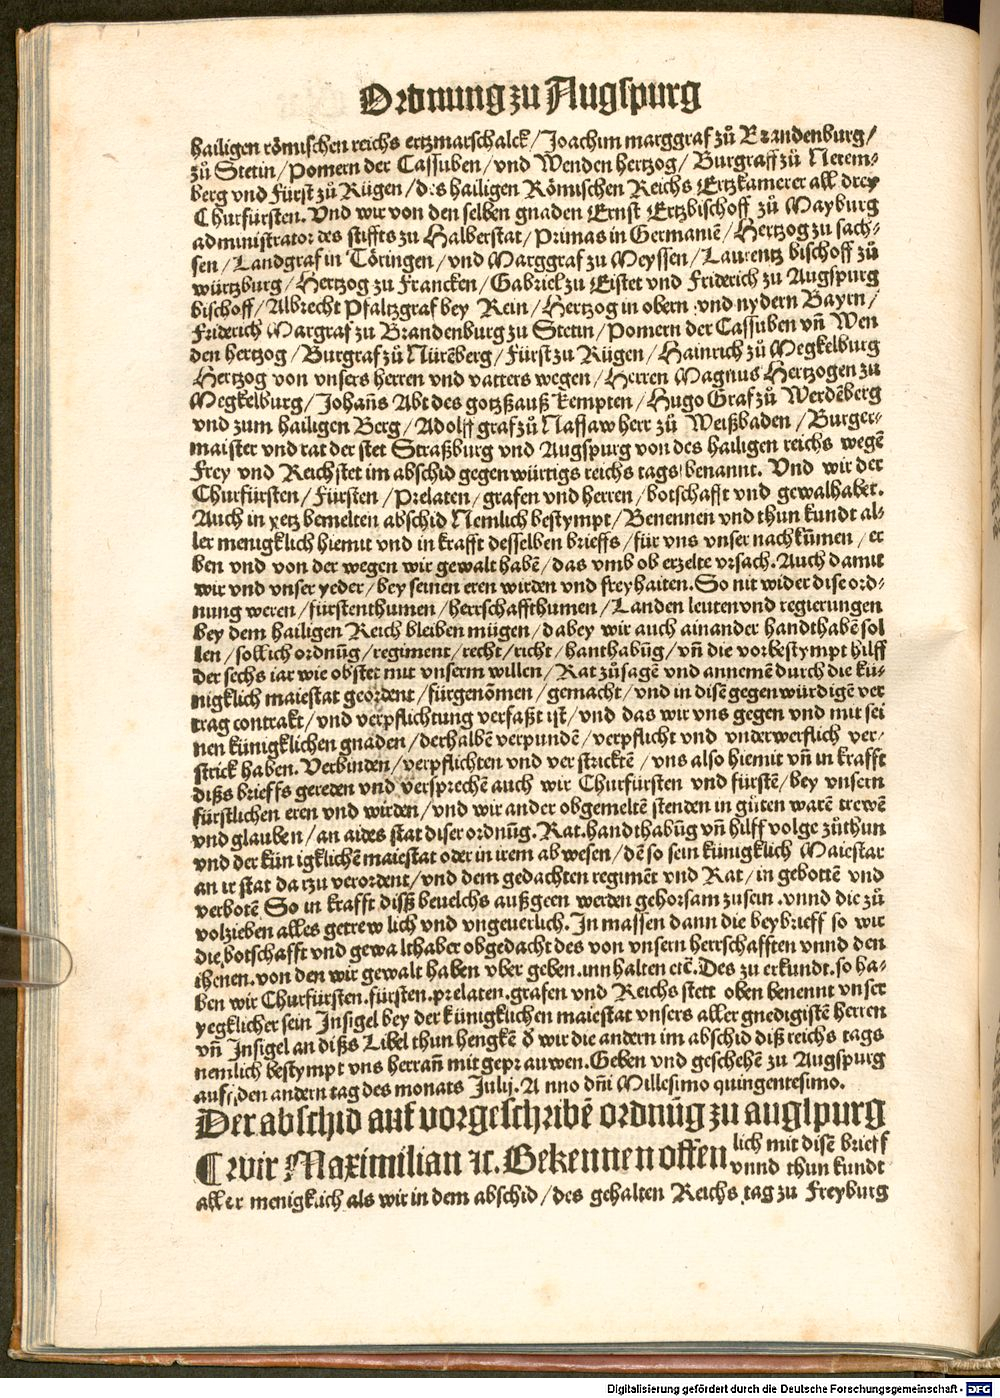 Ordnung zu Augspurg
hailigen römischen reichs ertzmarschalck / Joachim marggraf zů Brandenburg /
zů Stetin / Pomern der Cassuben / vnd Wenden hertzog / Burgraff zů Nerem-
berg vnd Fürst zů Rügen / des hailigen Römischen Reichs Ertzkamerer all drey
Churfürsten. Vnd wir von den selben gnaden Ernst Ertzbischoff zů Mayburg
administrator des stiffts zu Halberstat / Primas in Germanien / Hertzog zu sach-
sen / Landgraf in Töringen / vnd Marggraf zu Meyssen / Laurentz bischoff zů
würtzburg / Hertzog zu Francken / Gabriel zu Eistet vnd Friderich zu Augspurg
bischoff / Albrecht Pfaltzgraf bey Rein / Hertzog in obern vnd nydern Bayrn /
Friderich Margraf zu Brandenburg zu Stetin / Pomern der Cassuben vñ Wen
den hertzog / Burgraf zů Nürẽberg / Fürst zu Rügen / Hainrich zů Megkelburg
Hertzog von vnsers herren vnd vatters wegen / Herren Magnus Hertzogen zu
Megkelburg / Johañs Abt des gotzßauß kempten / Hugo Graf zů Werdẽberg
vnd zum hailigen Berg / Adolff graf zů Nassaw herr zů Weißbaden / Burger-
maister vnd rat der stet Straßburg vnd Augspurg von des hailigen reichs wegẽ
Frey vnd Reichstet im abschid gegenwürtigs reichs tags benannt. Vnd wir der
Churfürsten / Fürsten / Prelaten / grafen vnd herren / botschafft vnd gewalhaber.
Auch in yetz bemelten abschid Nemlich bestympt / Benennen vnd thun kundt al-
ler menigklich hiemit vnd in krafft desselben brieffs / für vns vnser nachkũmen / er
ben vnd von der wegen wir gewalt habẽ / das vmb ob erzelte vrsach. Auch damit
wir vnd vnser yeder / bey seinen eren wirden vnd freyhaiten. So nit wider dise ord-
nung weren / fürstenthumen / herrschaffthumen / Landen leuten vnd regierungen
bey dem hailigen Reich bleiben mügen / dabey wir auch ainander handthabẽ sol
len / sollich ordnũg / regiment / recht / richt / hanthabũg / vñ die vorbestympt hilff
der sechs iar wie obstet mit vnserm willen / Rat zůsagẽ vnd annemẽ durch die kü-
nigklich maiestat geordent / fürgenõmen / gemacht / vnd in disẽ gegenwürdigẽ ver
trag contrakt / vnd verpflichtung verfaßt ist / vnd das wir vns gegen vnd mit sei
nen künigklichen gnaden / derhalbẽ verpundẽ / verpflicht vnd vnderwerflich ver-
strick haben. Verbinden / verpflichten vnd verstricktẽ / vns also hiemit vñ in krafft
dißs brieffs gereden vnd versprechẽ auch wir Churfürsten vnd fürstẽ / bey vnsern
fürstlichen eren vnd wirden / vnd wir ander obgemeltẽ stenden in güten warẽ trewẽ
vnd glauben / an aides stat diser ordnũg. Rat. handthabũg vñ hilff volge zůthun
vnd der künigklichẽ maiestat oder in irem abwesen / dẽ so sein künigklich Maiestat
an ir stat darzu verordent / vnd dem gedachten regimẽt vnd Rat / in gebottẽ vnd
verbotẽ So in krafft dißs beuelchs außgeen werden gehorsam zusein . vnnd die zů
volzieben alles getrewlich vnd vngeuerlich. In massen dann die beybrieff so wir
die botschafft vnd gewalthaber obgedacht des von vnsern herrschafften vnnd den
ihenen. von den wir gewalt haben vber geben. innhalten etẽ. Des zu erkundt. so ha-
ben wir Churfürsten. fürsten. prelaten. grafen vnd Reichs stett oben benennt vnser
yegklicher sein Insigel bey der künigklichen maiestat vnsers aller gnedigistẽ herren
vñ Insigel an dißs Libel thun hengkẽ ð wir die andern im abschid diß reichs tags
nemlich bestympt vns herrañ mit geprauwen. Geben vnd geschehẽ zu Augspurg
auff den andern tag des monats Julij. Anno dñi Millesimo quingentesimo.
Der abschid auf vorgeschribẽ ordnũg zu augspurg
¶ wir Maximilian ꝛc. Bekennen offen lich mit disẽ brieff
vnnd thun kundt
aller menigklich als wir in dem abschid / des gehalten Reichs tag zu Freyburg
Digitalisierung gefördert durch die Deutsche Forschungsgemeinschaft - DFG